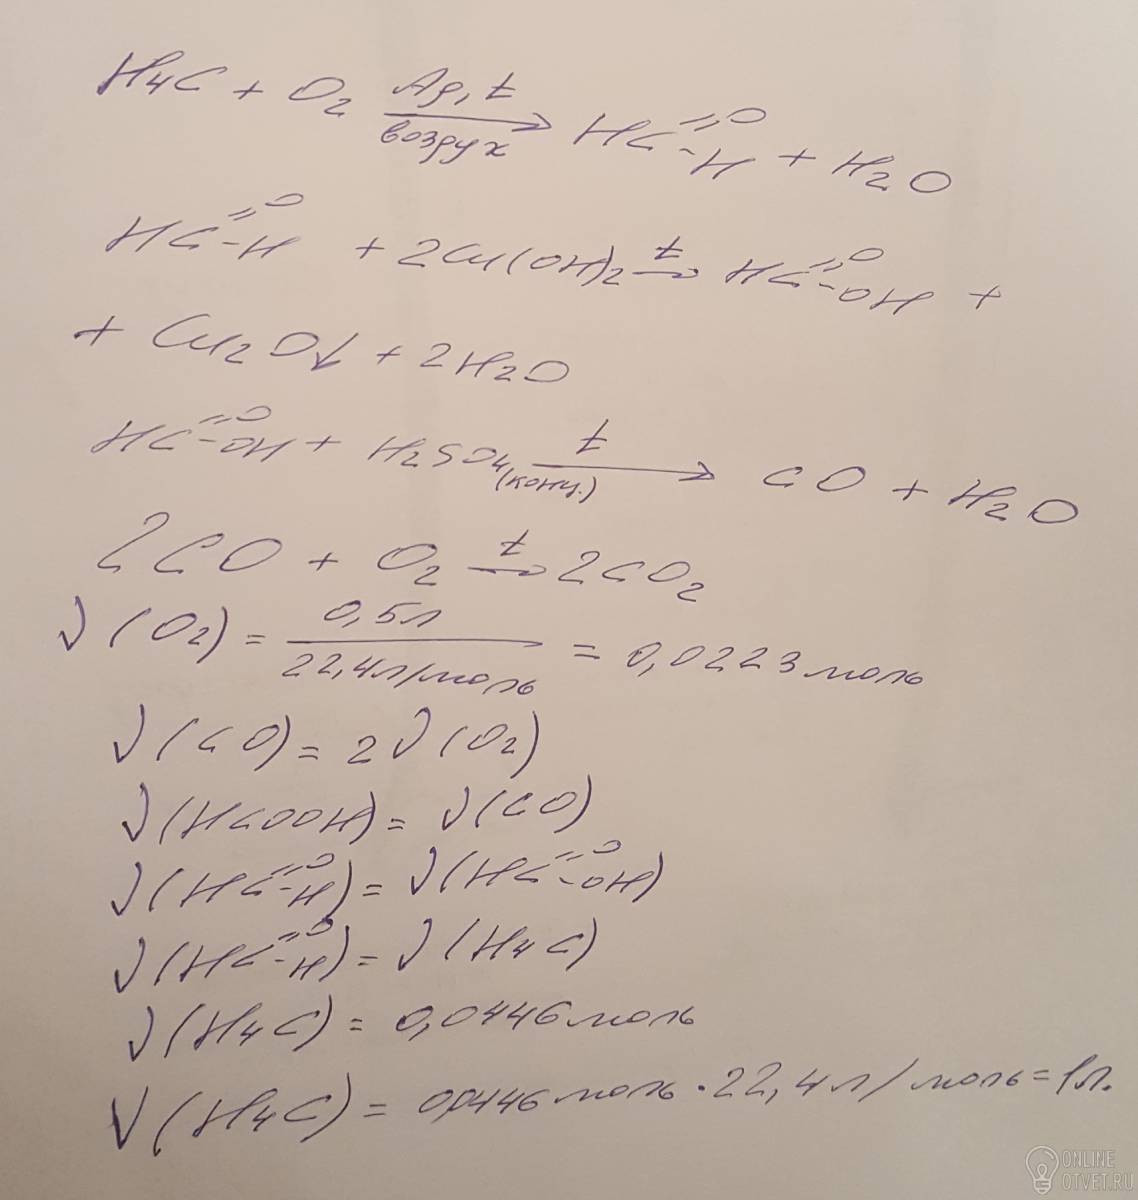 H₄C + O₂ Ag, t воздух → HC=O-H + H₂O
HC=O-H + 2Cu(OH)₂ t → HC=O-OH +
+ Cu₂O↓ + 2H₂O
HC=O-OH + H₂SO₄ (конц.) t → CO + H₂O
2CO + O₂ t → 2CO₂
ν(O₂) = 0,5л / 22,4л/моль = 0,0223моль
ν(CO) = 2ν(O₂)
ν(HCOOH) = ν(CO)
ν(HC=O-H) = ν(HC=O-OH)
ν(HC=O-H) = ν(H₄C)
ν(H₄C) = 0,0446моль
V(H₄C) = 0,0446моль · 22,4л/моль = 1л.
ONLINE
OTVET.RU